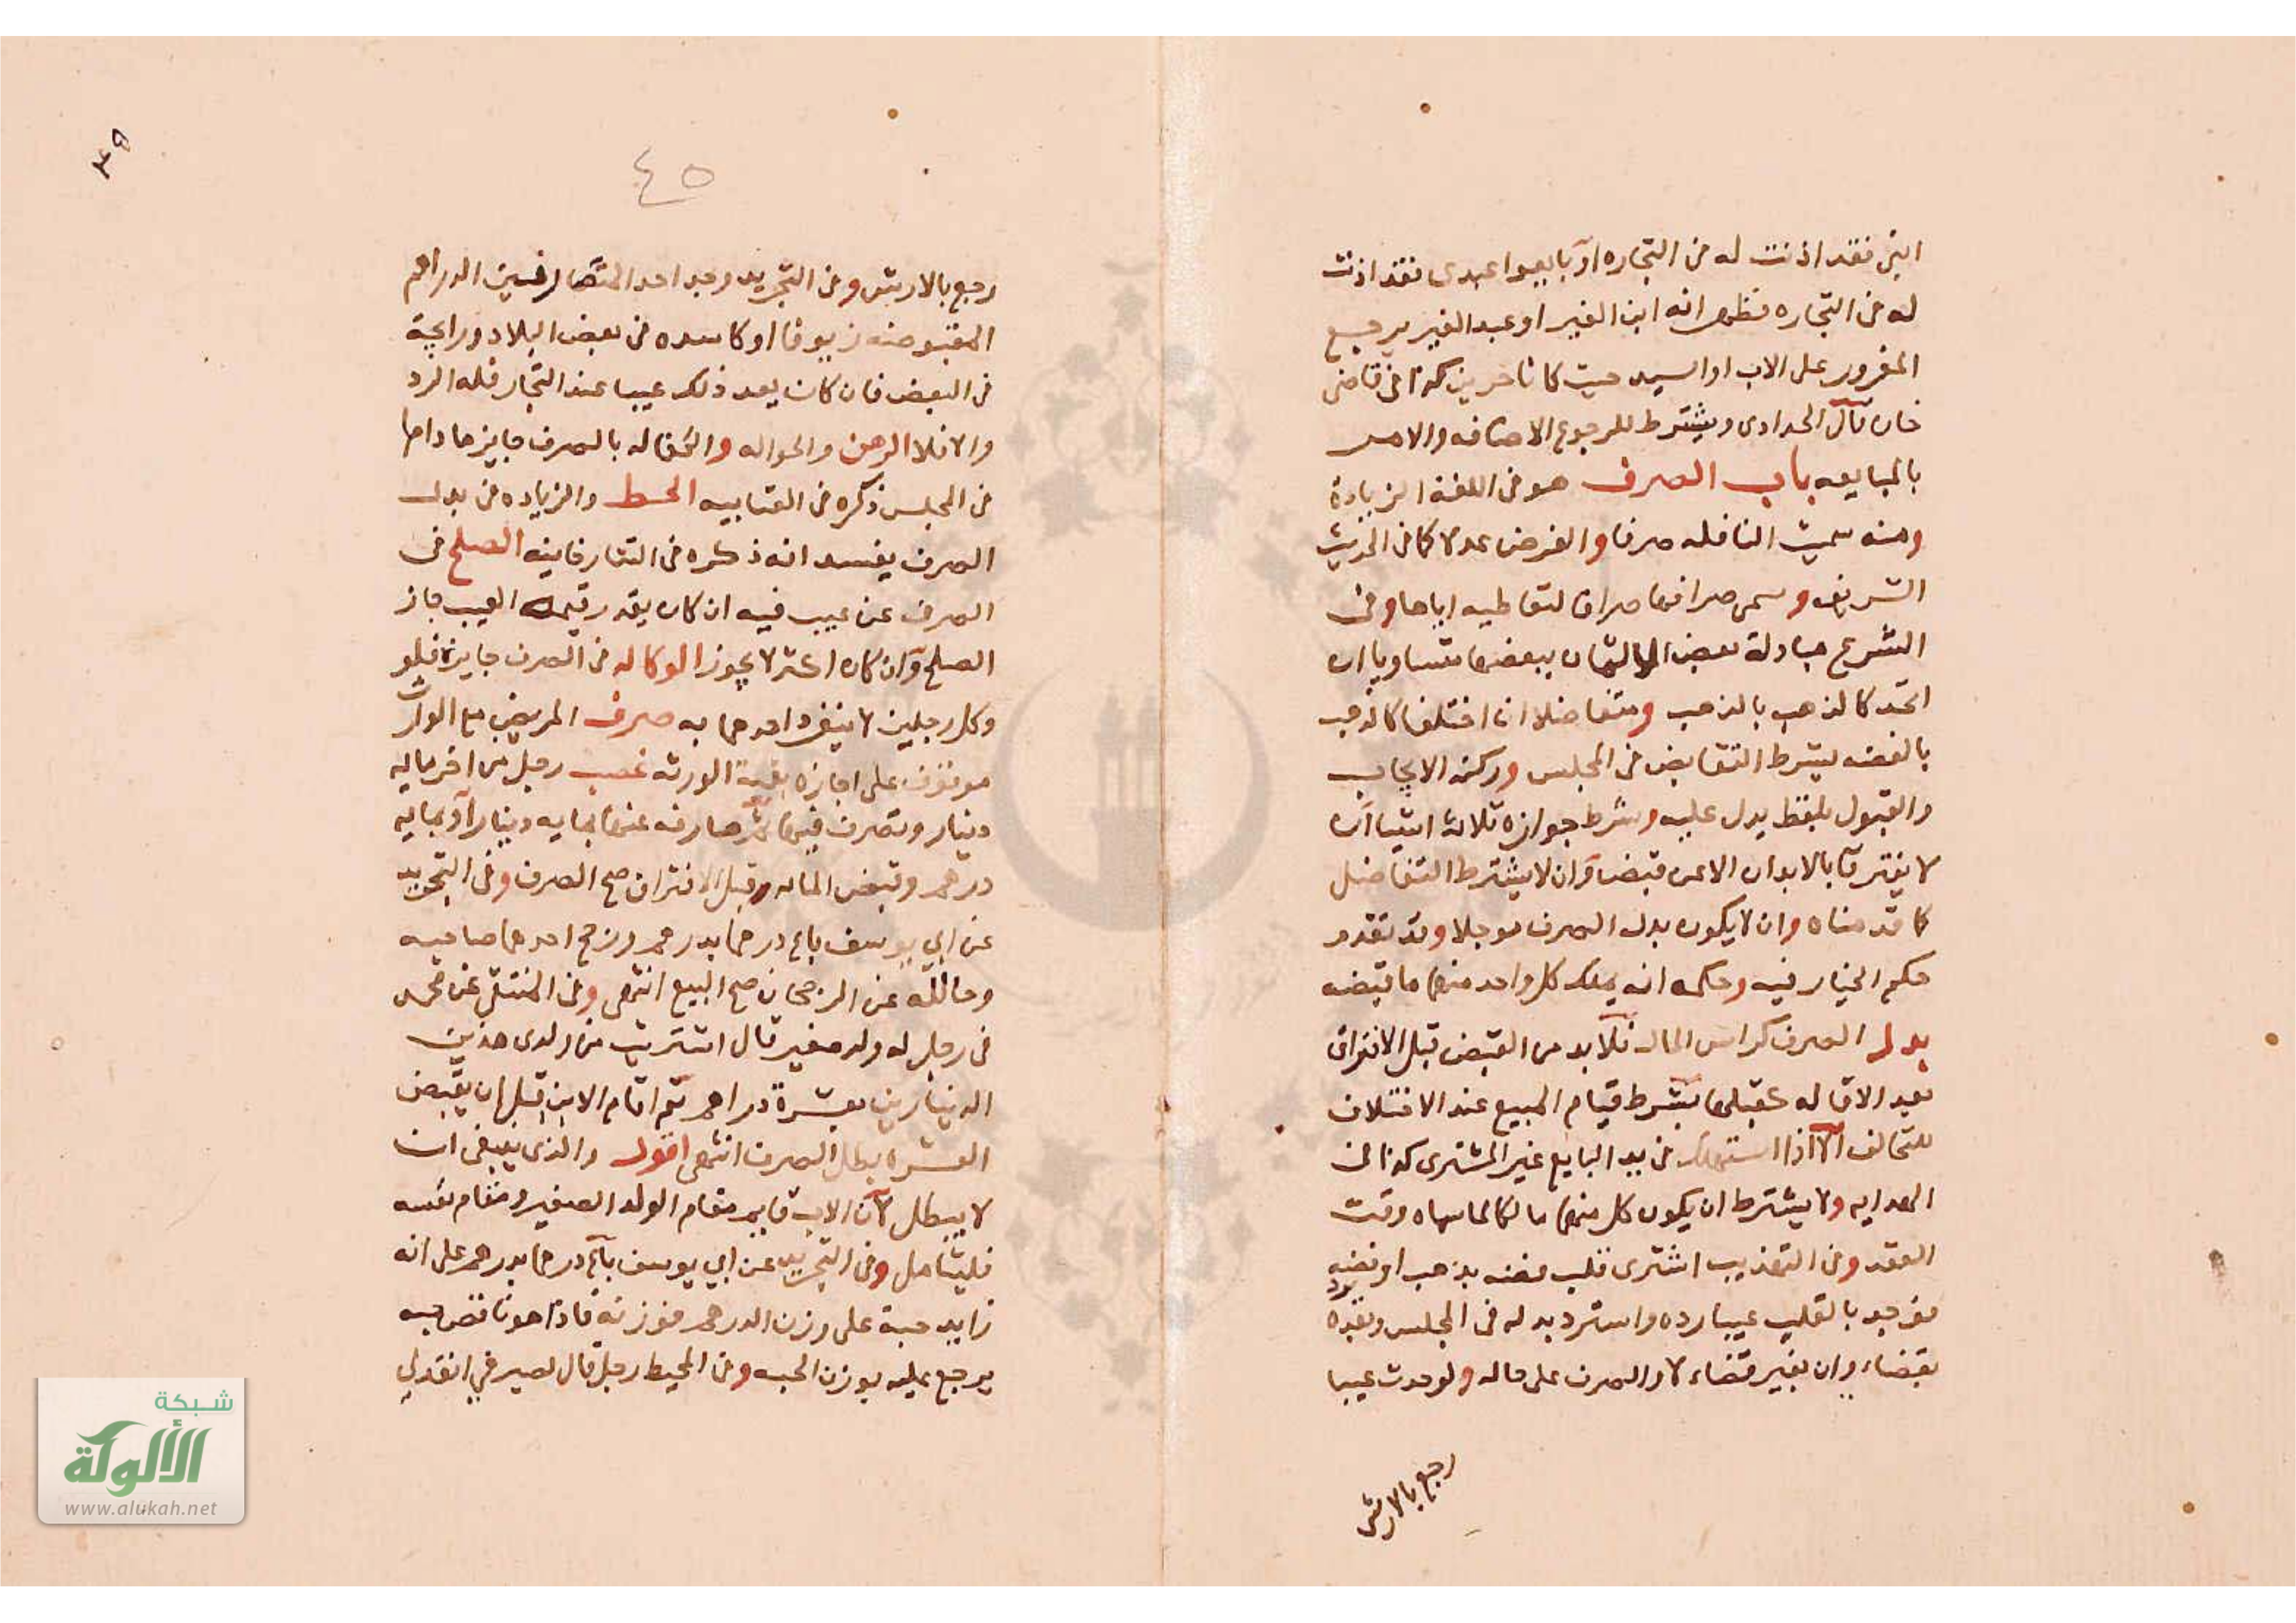 ابني فقد اذنت له في التجاره او بايعوا عبدي فقد اذنت
له في التجاره فظهر انه ابن الغير او عبد الغير يرجع
المغرور على الاب او السيد حيث كانا حرين كذا في قاضي
خان قال الحدادي ويشترط للرجوع الاضافه والامر
بالمبايعه باب الصرف هو في اللغة الزيادة
ومنه سميت النافله صرفا والفرض عدلا كما في الحديث
الشريف وسمى صرافها صرافا لتعاطيه اياها وفي
الشرع مبادلة بعض الاثمان ببعضها متساويا ان
اتحد كالذهب بالذهب ومتفاضلا ان اختلفا كالذهب
بالفضه بشرط التقابض في المجلس وركنه الايجاب
والقبول بلفظ يدل عليه وشرط جوازه ثلاث اشيا ان
لا يفترقا بالابدان الا عن قبض وان لا يشترط التفاضل
كما قدمناه وان لا يكون بدل الصرف موجلا وقد تقدم
حكم الخيار فيه وحكمه انه يملك كل واحد منهما ما قبضه
بدل الصرف كراس المال فلا بد من القبض قبل الافتراق
بعد الاقاله كقبلها بشرط قيام المبيع عند الاختلاف
للتحالف الا اذا استهلكه في يد البايع غير المشتري كذا في
الهدايه ولا يشترط ان يكون كل منهما مالكا لما سماه وقت
العقد وفي التهذيب اشترى قلب فضه بذهب او فضه
فوجد بالقلب عيبا رده واسترد بدله في المجلس وبعده
بقضاء وان بغير قضاء لا والصرف على حاله ولو حدث عيبا
رجع بالارش
٣٩
٤٥
رجع بالارش وفي التجريد وجد احد المتصارفين الدراهم
المقبوضه زيوفا او كاسده في بعض البلاد ورايجة
في البعض فان كان يعد ذلك عيبا عند التجار فله الرد
والا فلا الرهن والحواله والكفاله بالصرف جايز ما داما
في المجلس ذكره في العتابيه الحط والزياده في بدل
الصرف يفسد انه ذكره في التتارخانيه الصلح في
الصرف عن عيب فيه ان كان بقدر قيمة العيب جاز
الصلح وان كان اكثر لا يجوز الوكاله في الصرف جايزة فلو
وكل رجلين لا ينفرد احدهما به صرف المريض مع الوارث
موقوف على اجازه بقية الورثه غصب رجل من اخر ماية
دينار وتصرف فيها ثم صارفه عنها بمايه دينار او بمايه
درهم وقبض الماله قبل الافتراق صح الصرف وفي التجريد
عن ابي يوسف باع درهما بدرهم ورجح احدهما صاحبه
وحالله عن الرجحان صح البيع انتهى وفي المنتقى عن محمد
في رجل له ولد صغير قال اشتريت من ولدي هذين
الدينارين بعشرة دراهم ثم اقام الابن قبل ان يقبض
العشره بطل الصرف انتهى اقول والذي ينبغي ان
لا يبطل لان الاب قايم مقام الولد الصغير ومقام نفسه
فليتامل وفي التجريد عن ابي يوسف باع درهما بدرهم على انه
زايد حبة على وزن الدرهم فوزنه فاذا هو ناقص حبه
يرجع عليه بوزن الحبه وفي المحيط رجل قال لصيرفي انقد لي
شبكة
الألوكة
www.alukah.net